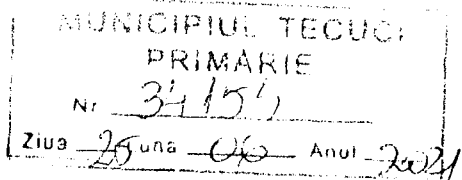 MUNICIPIUL TECUCI
PRIMĂRIE
Nr 34154
Ziua 25 Luna 06 Anul 2021